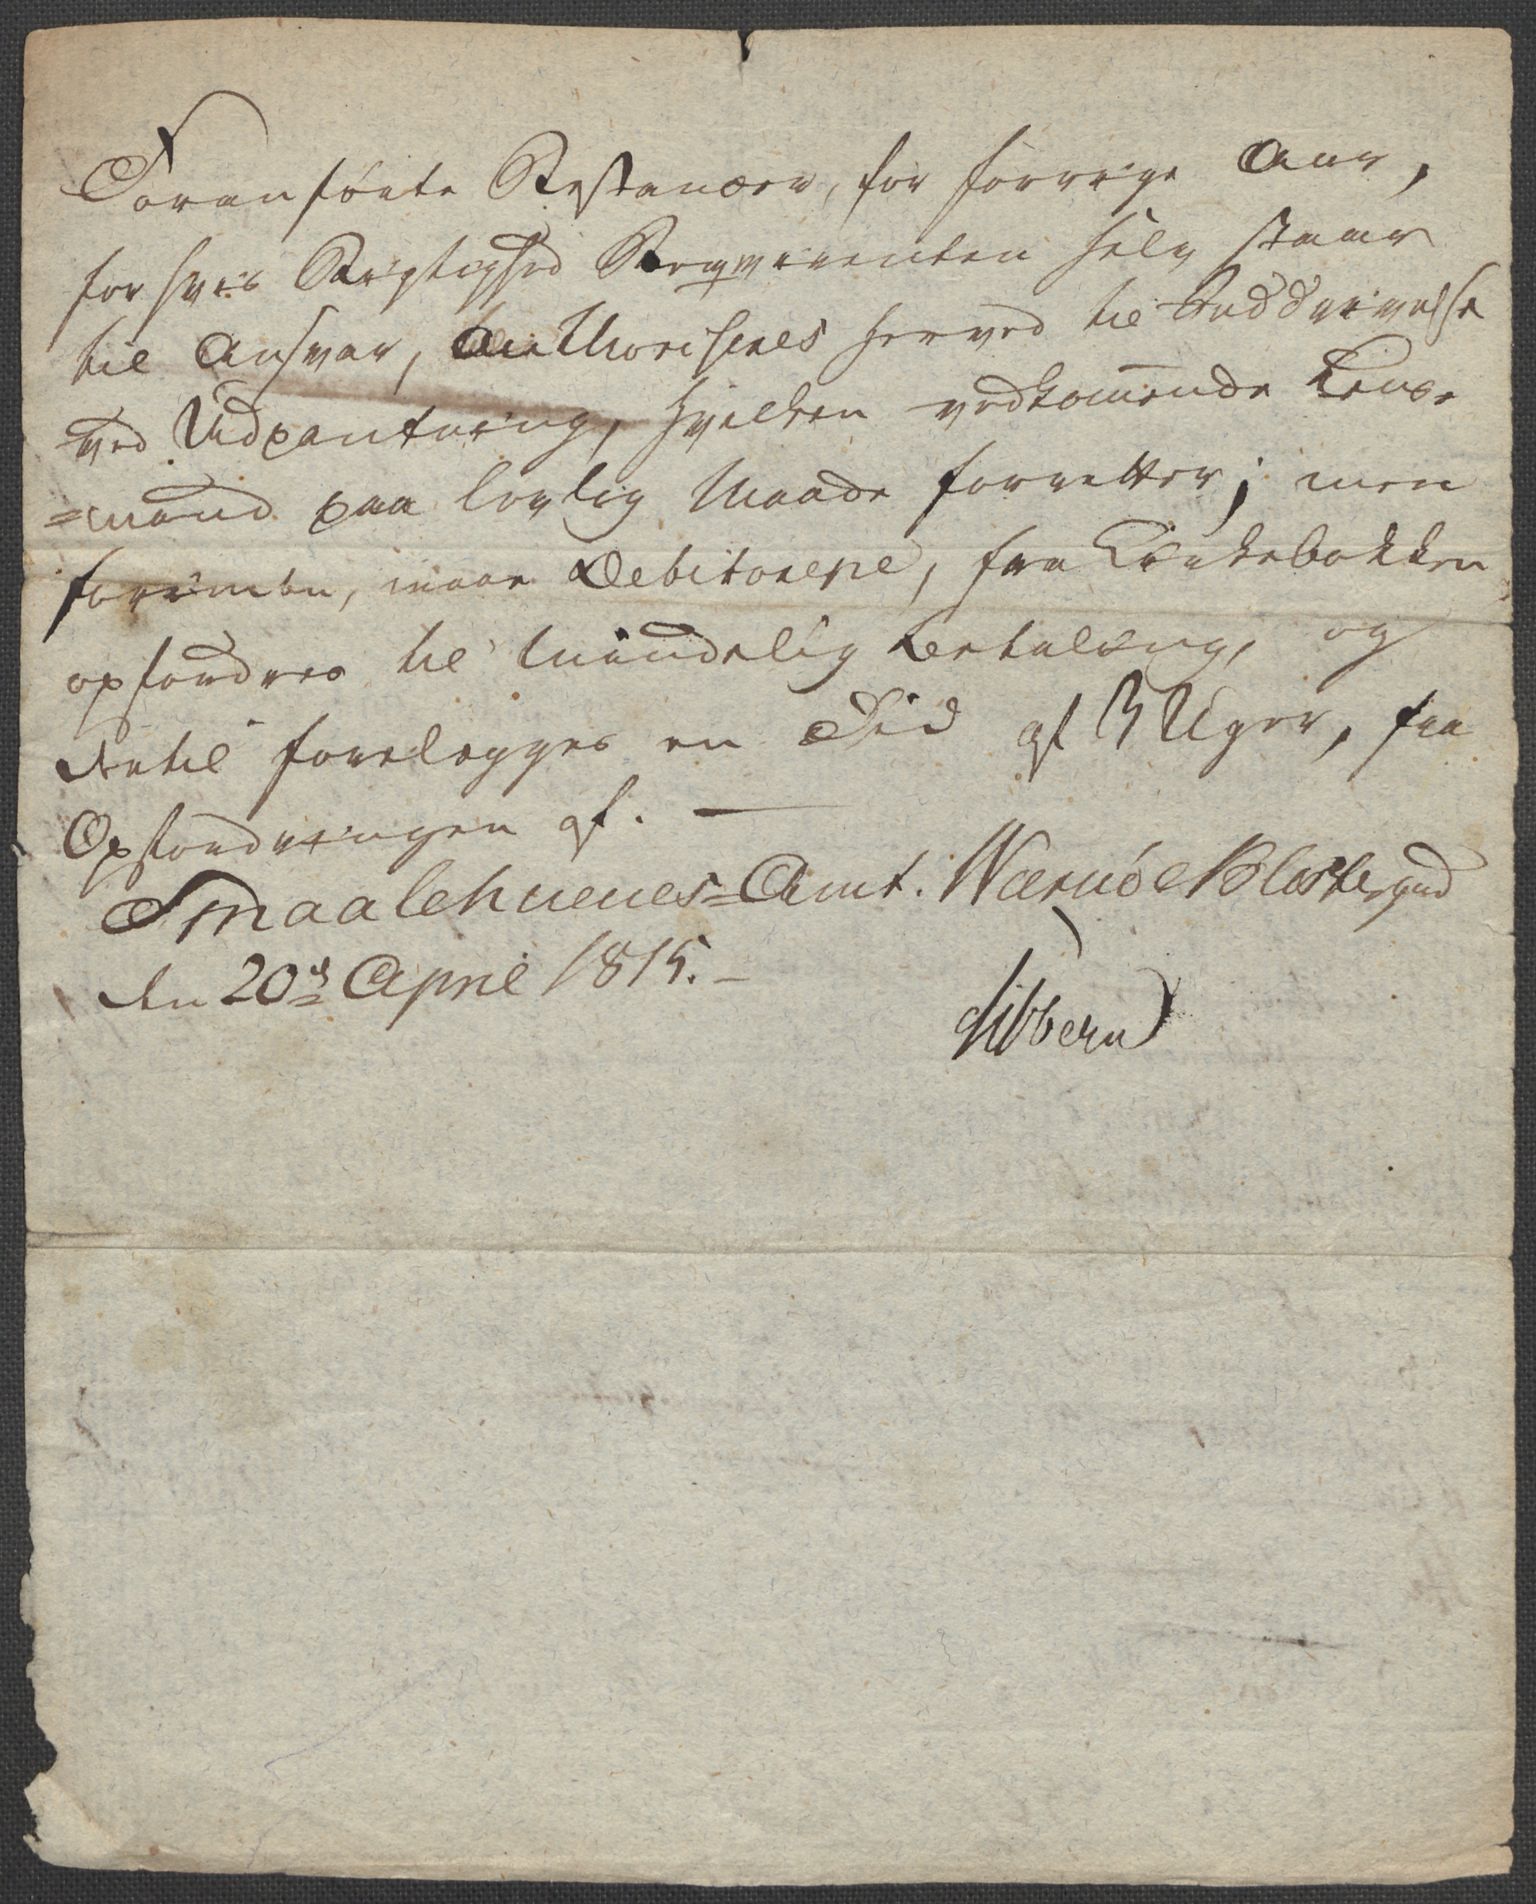 Foranførte Restancer, for forrige Aar,
for hvis Rigtighed Reqvirenten selv staar
til Ansvar, Authoriseres herved til Inddrivelse
ved Udpantning, hvilken vedkommende Lens-
=mand paa lovlig Maade forretter; men
forinden, maae Debitorerne, fra Kirkebakken
opfordres til mindelig Betaling, og
dertil forelægges en Tid af 3 Uger, fra
Opfordringen af. —
Smaalehnenes=Amt. Wærnøe Klostergrd
den 20d April 1815. —
Sibbern